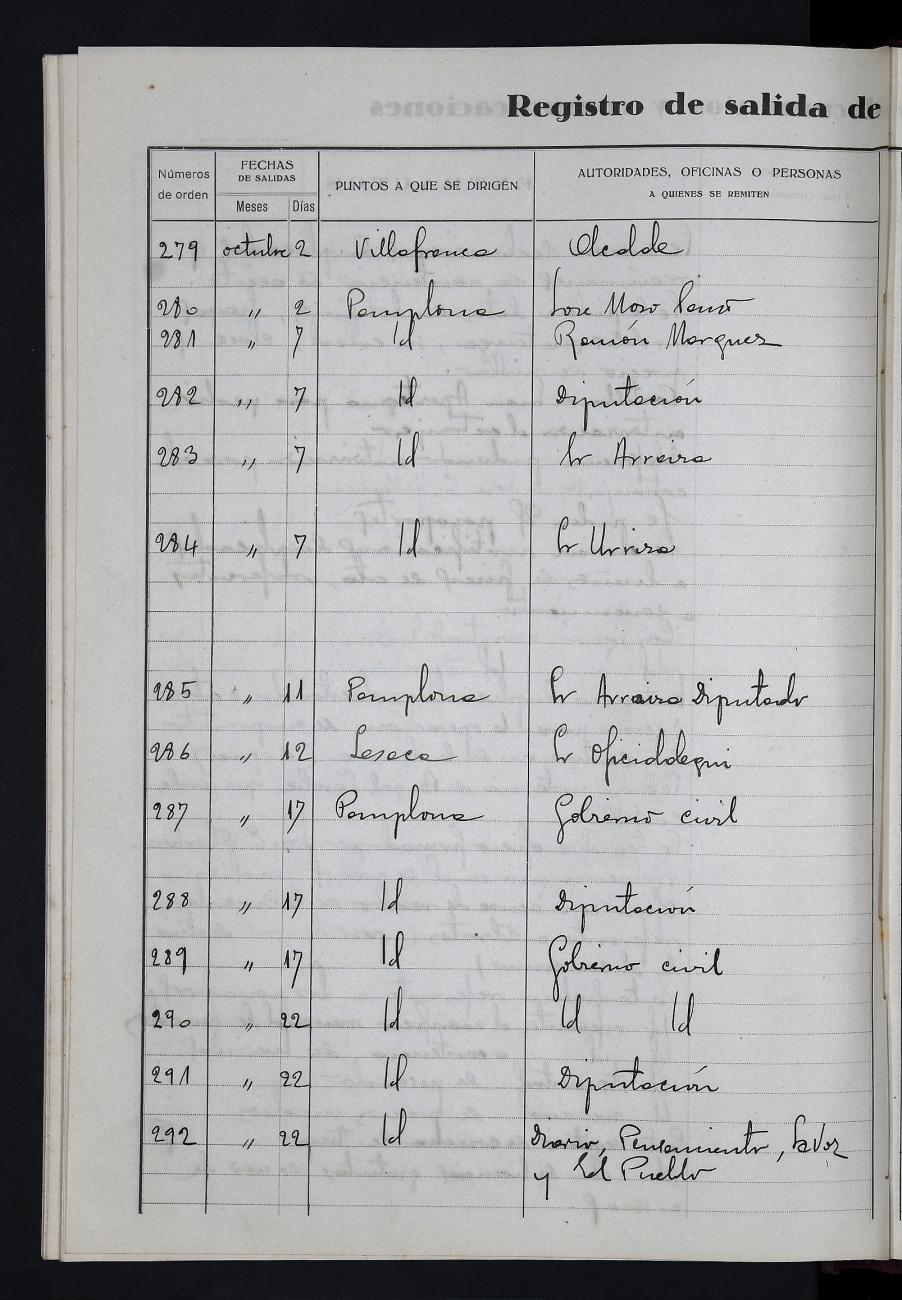 Registro de salida de
Números de orden
FECHAS DE SALIDAS
Meses Días
PUNTOS A QUE SE DIRIGEN
AUTORIDADES, OFICINAS O PERSONAS
A QUIENES SE REMITEN
279 octubre 2 Villafranca Alcalde
280 " 2 Pamplona Jose Moso
281 " 7 Id Ramón Marquez
282 " 7 Id Diputación
283 " 7 Id Sr Arraiza
284 " 7 Id Sr Urriza
285 " 11 Pamplona Sr Arraiza Diputado
286 " 12 Lesaca Sr Oficialdegui
287 " 17 Pamplona Gobierno civil
288 " 17 Id Diputación
289 " 17 Id Gobierno civil
290 " 22 Id Id Id
291 " 22 Id Diputación
292 " 22 Id Diario, Pensamiento, La Voz
y El Pueblo